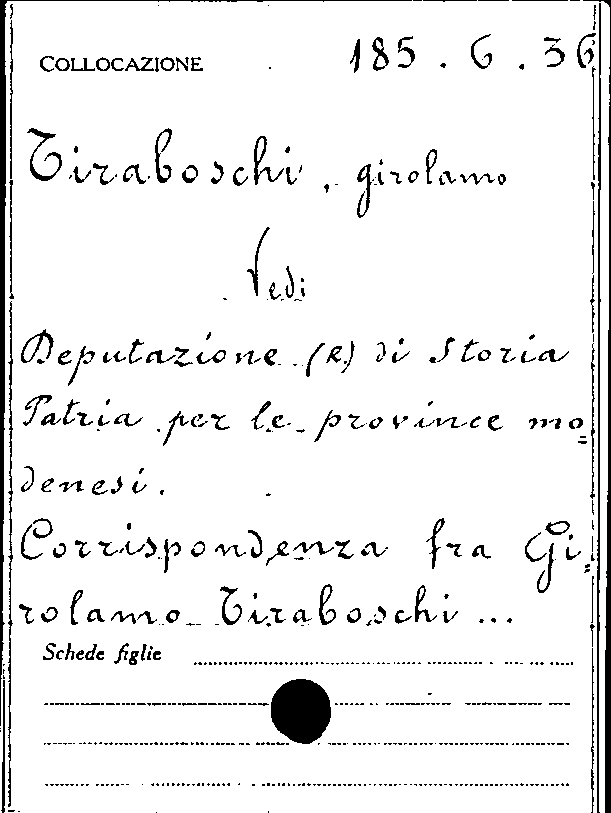 COLLOCAZIONE 185.6.36
Tiraboschi, girolamo
Vedi
Deputazione (R) di Storia
Patria per le province mo=
denesi.
Corrispondenza fra Gi=
rolamo Tiraboschi ...
Schede figlie